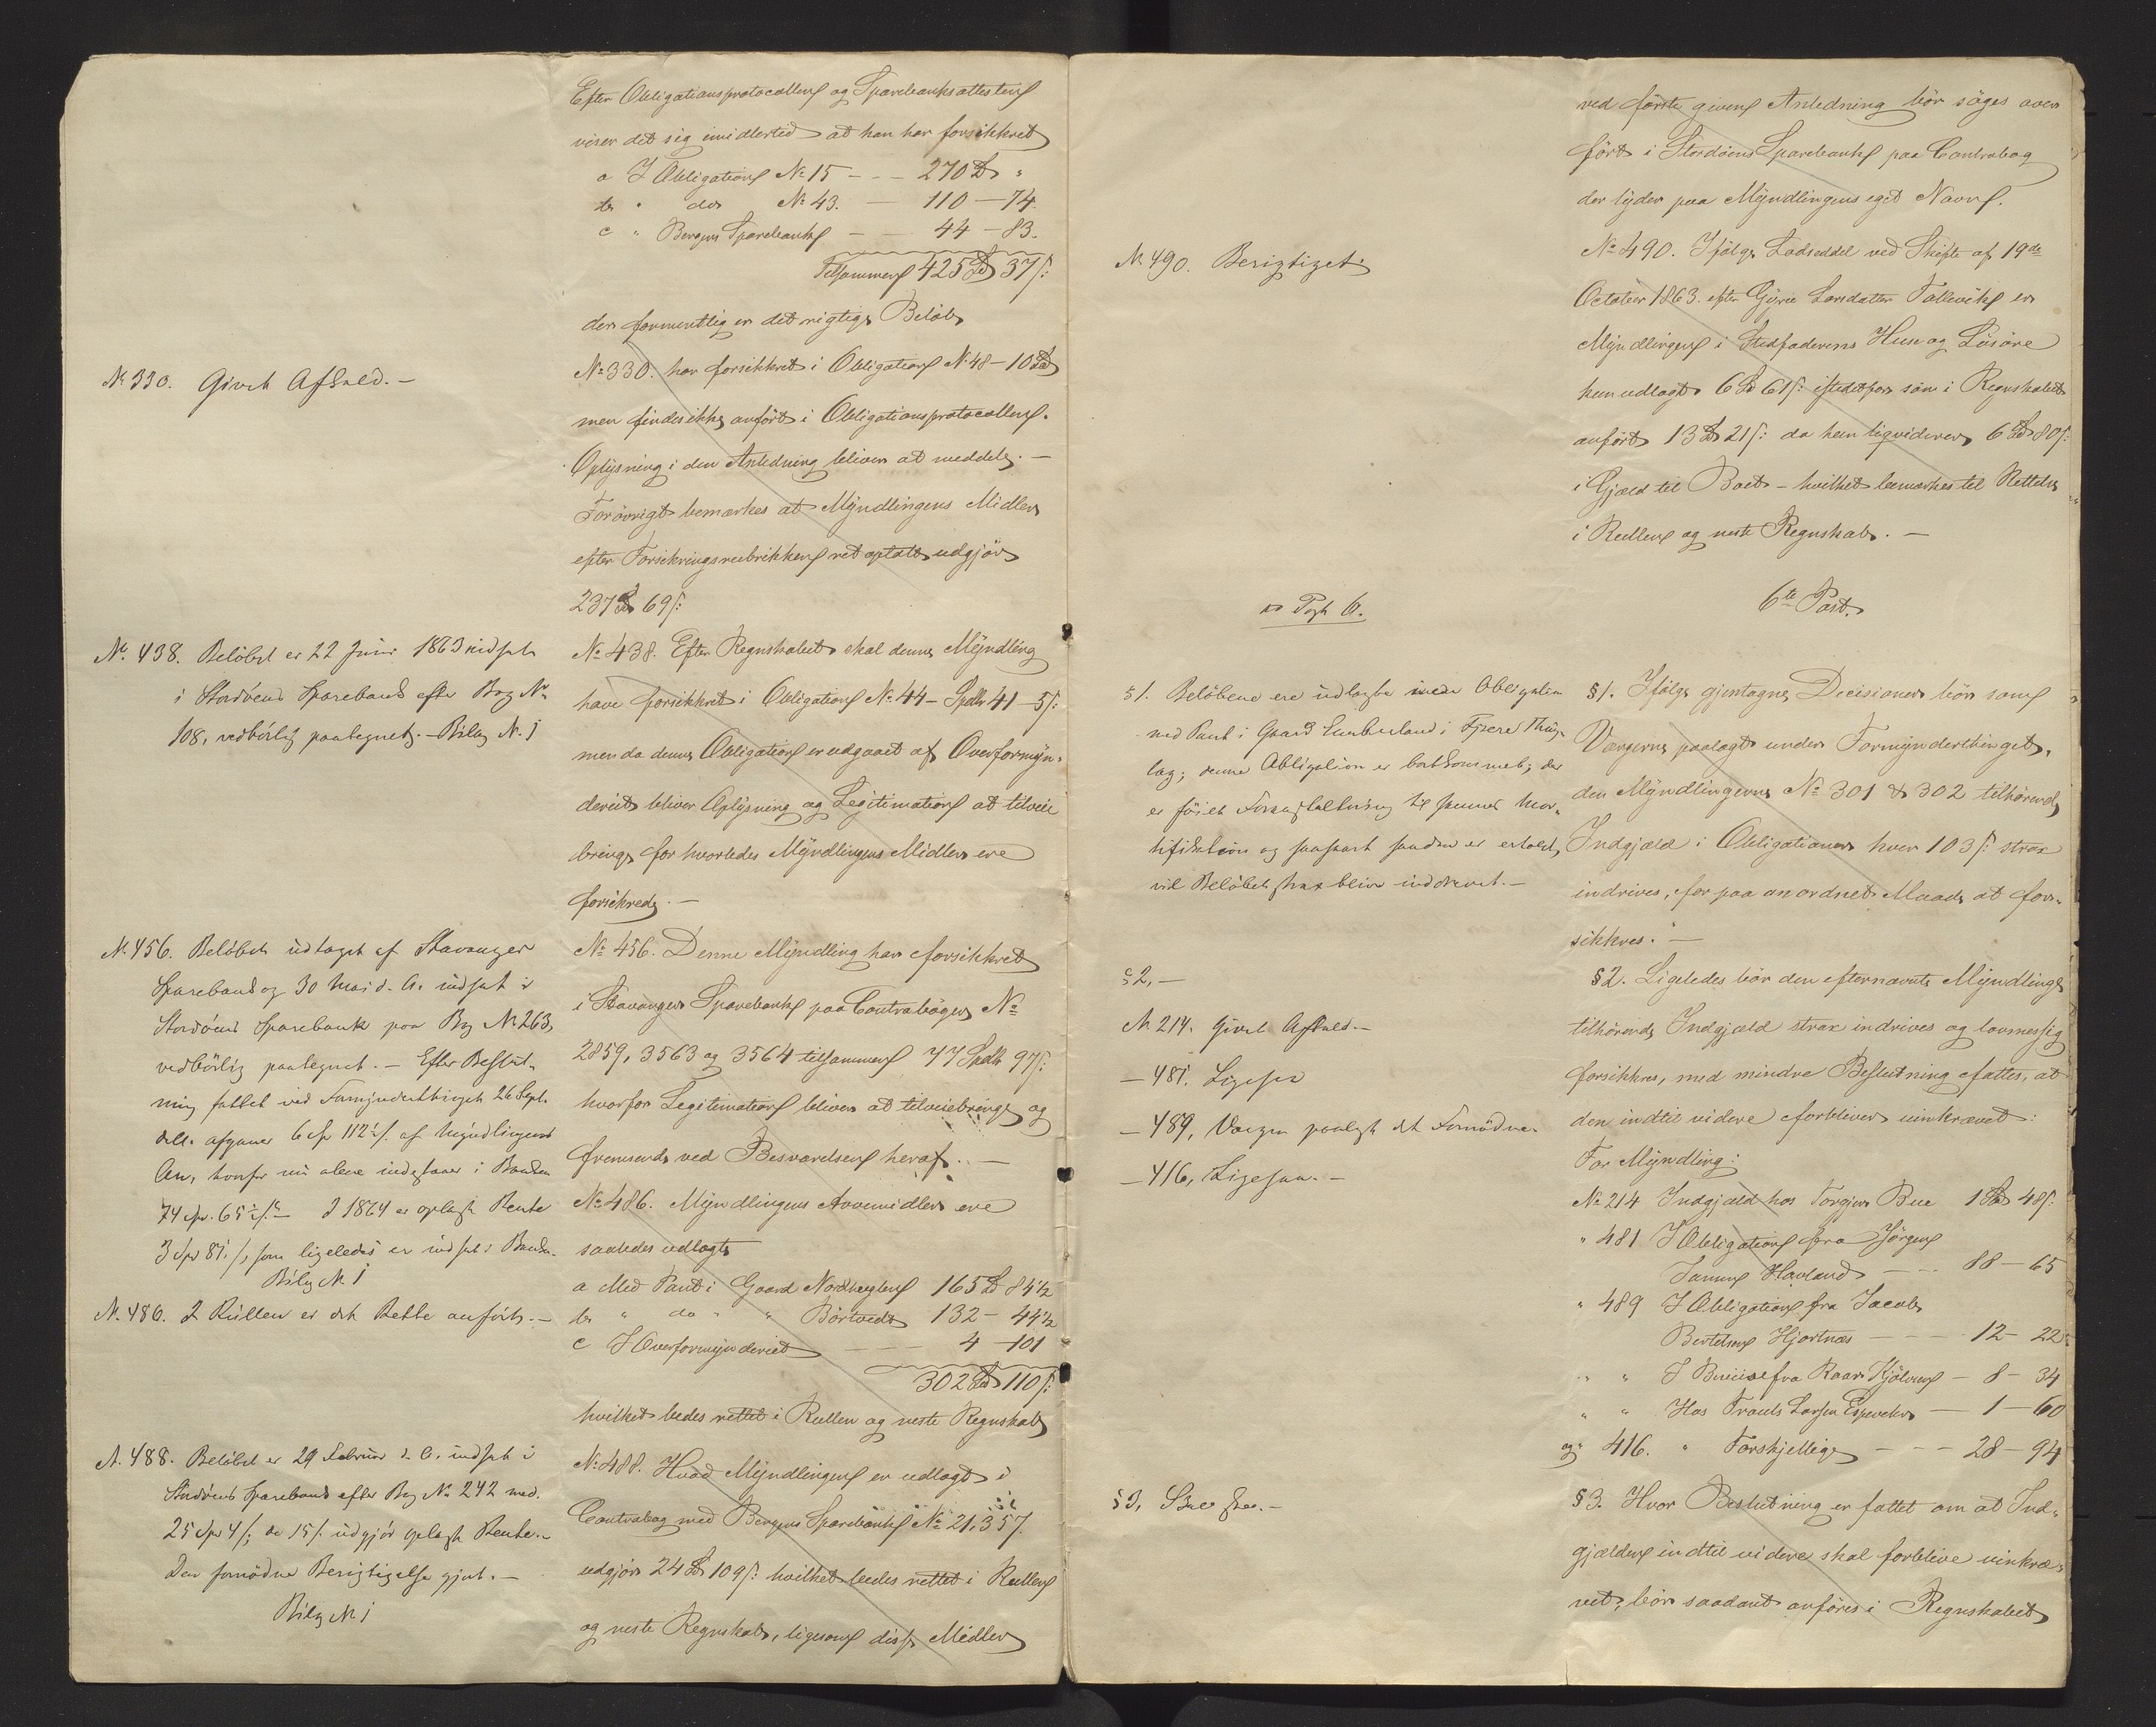 Efter Obligationsprotocollen og Sparebanksattesten
viser det sig imidlertid at han har forsikkret
a I Obligation No 15 - - - 270 Sp "
b " do No 43. — 110 — 74.
c " Bergens Sparebank — — 44 — 83.
Tilsammen 425 Sp 37 s:
der formentlig er det rigtige Beløb
No 330. har forsikkret i Obligation No 48 — 10 Spd
men findes ikke anført i Obligationsprotocollen.
Oplysning i den Anledning bliver at meddele. —
Forøvrigt bemærkes at Myndlingens Midler
efter Forsikringsrubrikken ret optalt udgjør
237 Sp 69 s:
No 438. Efter Regnskabet skal denne Myndling
have forsikkret i Obligation No 44 — Spdlr 41 — 5 s:
men da denne Obligation er udgaaet af Overformyn-
deriet bliver Oplysning og Legitimation at tilveie
bringe for hvorledes Myndlingens Midler ere
forsikrede. —
No 456. Denne Myndling har forsikkret
i Stavanger Sparebank paa Contrabøger No
2859, 3563 og 3564 tilsammen 77 Spdlr 97 s:
hvorfor Legitimation bliver at tilveiebringe og
fremsende ved Besvarelsen heraf. —
No 486. Myndlingens Arvemidler ere
saaledes udlagt
a Med Pant i Gaard Nordhuglen 165 Sp 84 1/2
b " do " " Børtvedt 132 — 44 1/2
c I Overformynderiet — — 4 — 101
302 Spd 110 s:
hvilket bedes rettet i Rullen og neste Regnskab
No 488. Hvad Myndlingen er udlagt i
Contrabog med Bergens Sparebank No 21,357.
udgjør 24 Sp 109 s: hvilket bedes rettet i Rullen
og neste Regnskab, ligesom disse Midler
No 330. Givet Afkald. —
No 438. Beløbet er 22 Juni 1863 indsat
i Stordøens Sparebank efter Bog No
108, vedbørlig paategnet. — Bilag N. 1
N. 456. Beløbet udtaget af Stavanger
Sparebank og 30 Mai d. A. indsat i
Stordøens Sparebank paa Bog No 263,
vedbørlig paategnet. — Efter Beslut-
ning fattet ved Formynderthinget 26 Sept.
afgaaer 6 Sp 112 1/2 s. af Myndlingens
Arv, hvorfor nu alene indestaaer i Banken
74 Sp. 65 1/2 s. — I 1864 er oplagt Rente
3 Sp 81 s, som ligeledes er indsat i Banken.
Bilag N. 1
N. 486. I Rullen er det Rette anført. —
N. 488. Beløbet er 29 Februar d. A. indsat i
Stordøens Sparebank efter Bog No 242 med.
25 Sp 4 s; de 15 s. udgjør oplagt Rente. —
Den fornødne Berigtigelse gjort. —
Bilag N 1
ved første given Anledning bør søges over
ført i Stordøens Sparebank paa Contrabog
der lyder paa Myndlingens eget Navn.
No 490. Ifølge Lodseddel ved Skifte af 19de
October 1863. efter Gyrie Larsdatter Tallevik er
Myndlingen i Stedfaderens Huus og Løsøre
kun udlagt 6 Sp 61 s: istedetfor som i Regnskabet
anført 13 Sp 21 s: da han liqviderer 6 Sp 80 s:
i Gjæld til Boet — hvilket bemærkes til Rettelse
i Rullen og neste Regnskab. —
6te Post.
§ 1. Ifølge gjentagne Decisioner bør som
Værgerne paalagt under Formynderthinget,
den Myndlingerne No 301 & 302 tilhørende
Indgjæld i Obligationer hver 103 s: strax
indrives, for paa anordnet Maade at for-
sikkres. —
§ 2. Ligeledes bør den efternævnte Myndlinge
tilhørende Indgjæld strax indrives og lovmessig
forsikkres, med mindre Beslutning fattes, at
den indtil videre forbliver uinkrævet:
For Myndling:
No 214 Indgjæld hos Torgjer Bue 1 Sp 48 s:
" 481 I Obligation fra Jørgen
Havland — — 88 — 65
" 489 I Obligation fra Jacob
Bertelsen Hjortnæs — — — 12 — 22
" " I Beviis fra Roar Kjølven — 8 — 34
" " Hos Troels Larsen Espevold — 1 — 60
og 416. " Forskjellige — — — 28 — 94
§ 3. Hvor Beslutning er fattet om at Ind-
gjælden indtil videre skal forblive uinkræ-
vet, bør saadant anføres i Regnskabet
N. 490. Berigtiget.
Post 6.
§ 1. Beløbene ere udlagte inden Obligation
med Pant i Gaard i Fjære Thing-
lag; denne Obligation er bortkommet; der
er føiet Foranstaltning til sammes Mor-
tifikation og saasnart saadan er erholdt,
vil Beløbet strax blive inddrevet. —
§ 2, —
N. 214. Givet Afkald. —
— 481. Ligesaa
— 489, Værgen paalagt det Fornødne.
— 416, Ligesaa. —
§ 3, Skal skee. —